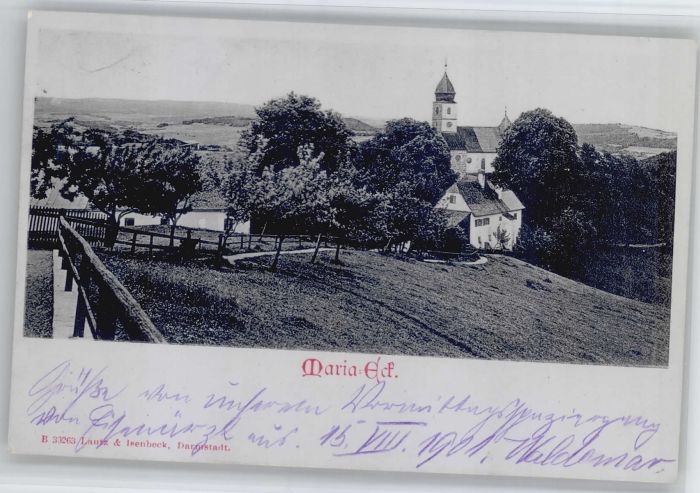 Maria-Eck.
Grüße von unserem Vormittagsspaziergang
von Eisenärzt aus. 15. VIII. 1901. Waldemar.
B 33263 Lautz & Isenbeck, Darmstadt.